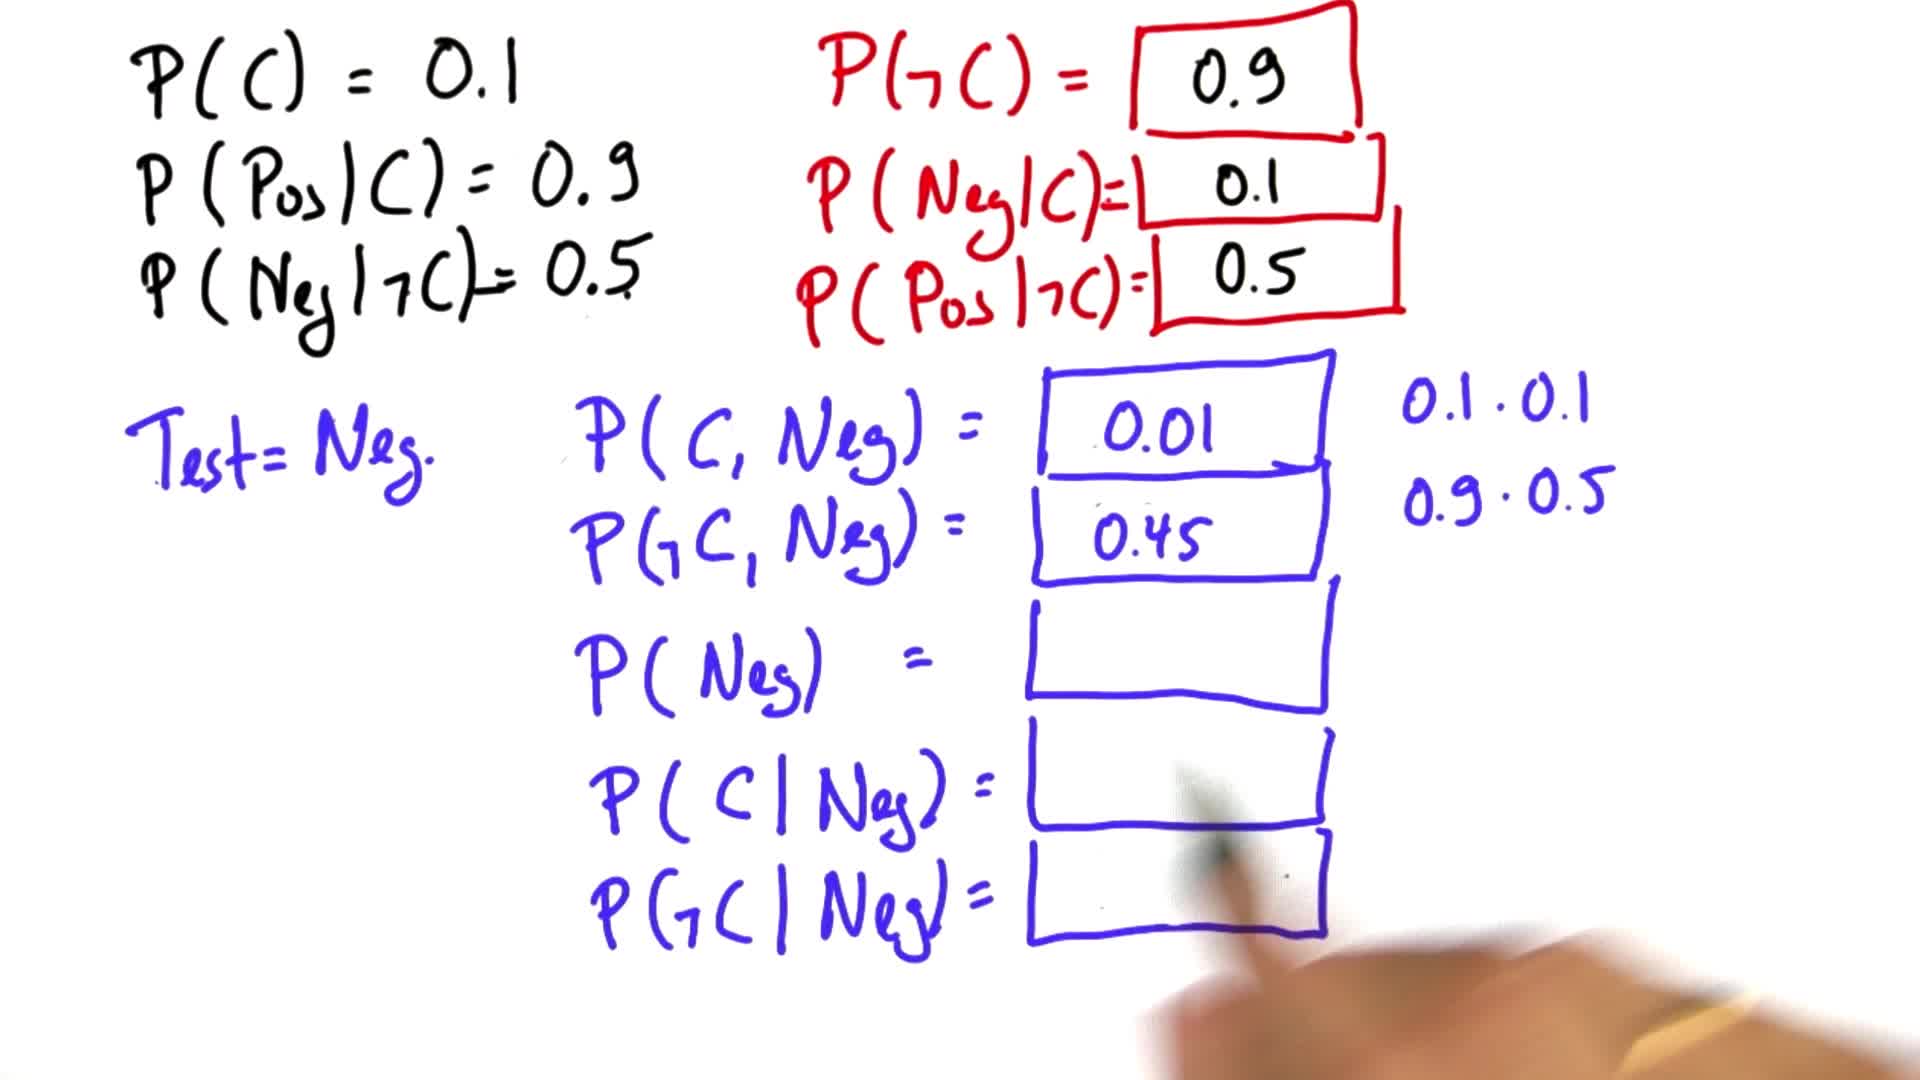 P(C) = 0.1
P(Pos|C) = 0.9
P(Neg|¬C) = 0.5
P(¬C) = 0.9
P(Neg|C) = 0.1
P(Pos|¬C) = 0.5
Test = Neg.
P(C, Neg) = 0.01 0.1 · 0.1
P(¬C, Neg) = 0.45 0.9 · 0.5
P(Neg) =
P(C|Neg) =
P(¬C|Neg) =